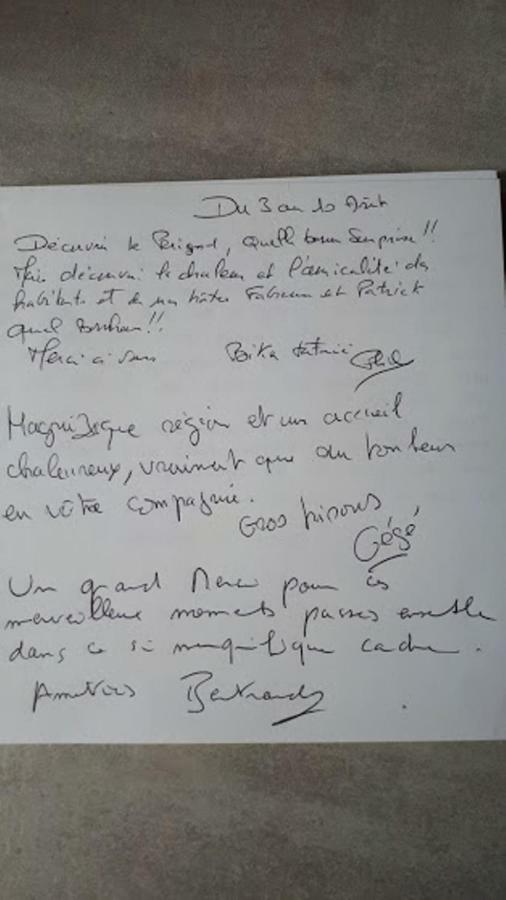 Du 3 au 10 Août
Découvrir le Périgord, quelle bonne surprise !!
Mais découvrir la chaleur et l'amicalité des
habitants et de nos hôtes Fabienne et Patrick
quel bonheur !!
Merci à vous
Magnifique région et un accueil
chaleureux, vraiment que du bonheur
en vôtre compagnie.
Gros bisous
Gégé
Un grand Merci pour ces
merveilleux moments passés ensemble
dans ce si magnifique cadre.
Amitiés Bertrand